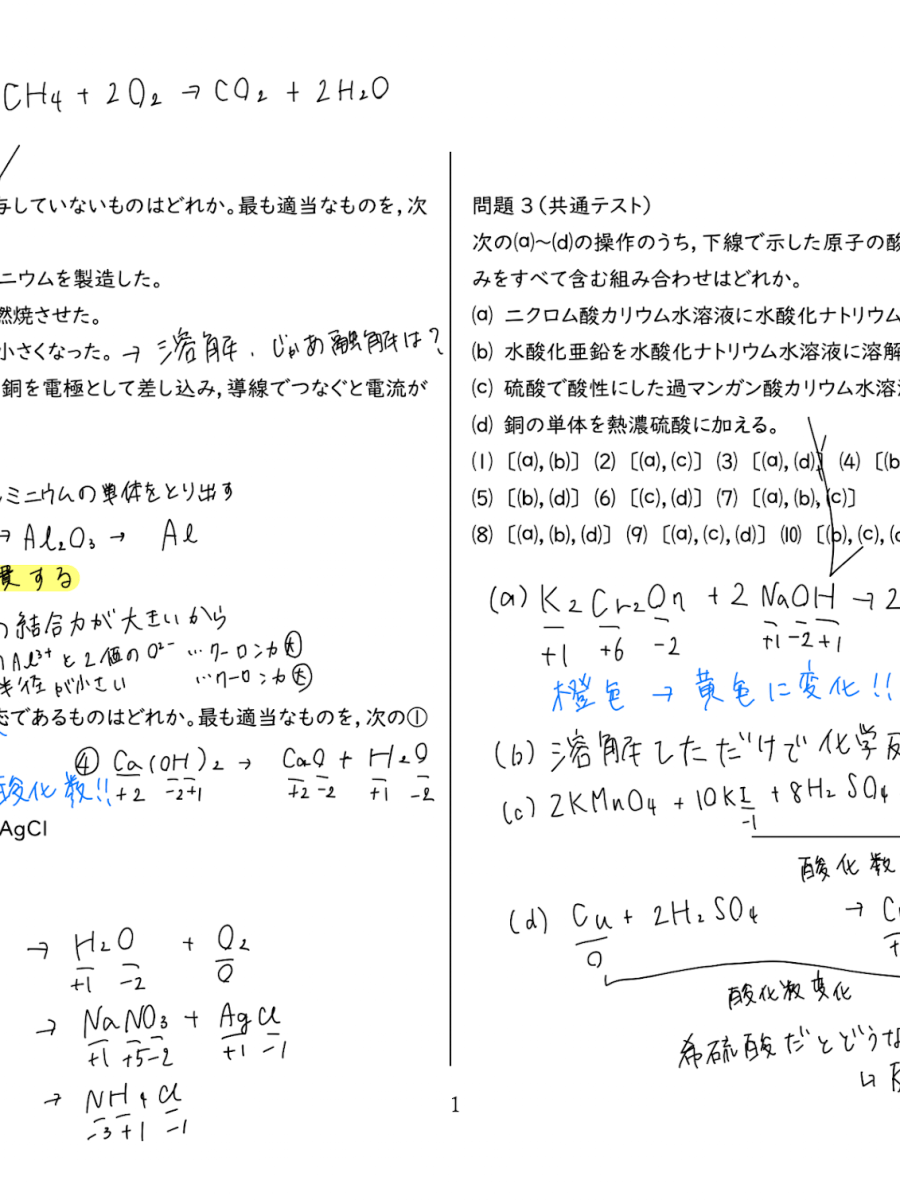 CH4 + 2O2 → CO2 + 2H2O
与していないものはどれか。最も適当なものを，次
ニウムを製造した。
燃焼させた。
小さくなった。→ 溶解．じゃあ融解は？
銅を電極として差し込み，導線でつなぐと電流が
ミニウムの単体をとり出す
→ Al2O3 → Al
する
の結合力が大きいから
Al3+ と2価のO2- …クーロン力大
半径が小さい …クーロン力大
であるものはどれか。最も適当なものを，次の①
④ Ca(OH)2 → CaO + H2O
+2 -2+1 +2 -2 +1 -2
酸化数!!
AgCl
→ H2O + O2
+1 -2 0
→ NaNO3 + AgCl
+1 +5-2 +1 -1
→ NH4Cl
-3+1 -1
問題3（共通テスト）
次の(a)～(d)の操作のうち，下線で示した原子の酸
みをすべて含む組み合わせはどれか。
(a) ニクロム酸カリウム水溶液に水酸化ナトリウム
(b) 水酸化亜鉛を水酸化ナトリウム水溶液に溶解
(c) 硫酸で酸性にした過マンガン酸カリウム水溶
(d) 銅の単体を熱濃硫酸に加える。
(1)［(a)，(b)］ (2)［(a)，(c)］ (3)［(a)，(d)］ (4)［(b
(5)［(b)，(d)］ (6)［(c)，(d)］ (7)［(a)，(b)，(c)］
(8)［(a)，(b)，(d)］ (9)［(a)，(c)，(d)］ (10)［(b)，(c)，(
(a) K2Cr2On + 2NaOH → 2
+1 +6 -2 +1 -2 +1
橙色 → 黄色に変化!!
(b) 溶解しただけで化学反
(c) 2KMnO4 + 10KI + 8H2SO4
-1
酸化数
(d) Cu + 2H2SO4 → C
0 +
酸化数変化
希硫酸だとどうな
1